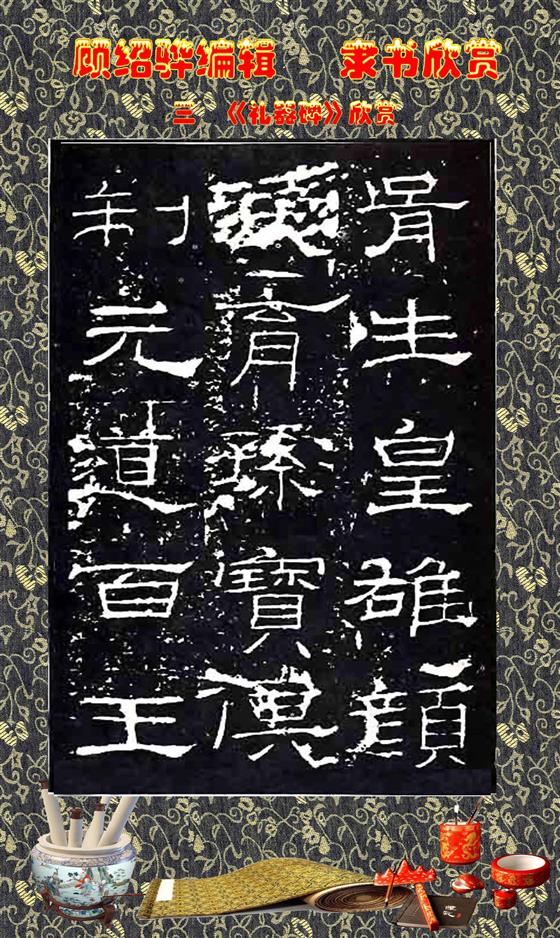 顾绍骅编辑 隶书欣赏
三 《礼器碑》欣赏
胥生皇雄顏
育寶俱
制元道百王